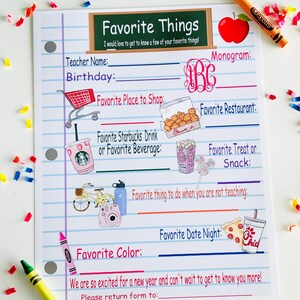 Favorite Things
I would love to get to know a few of your favorite things!
Teacher Name:
Monogram:
Birthday:
Favorite Place to Shop:
Favorite Restaurant:
Favorite Starbucks Drink
or Favorite Beverage:
Favorite Treat or
Snack:
Favorite thing to do when you are not teaching:
Favorite Date Night:
Favorite Color:
We are so excited for a new year and can't wait to get to know you more!
Please return form to: